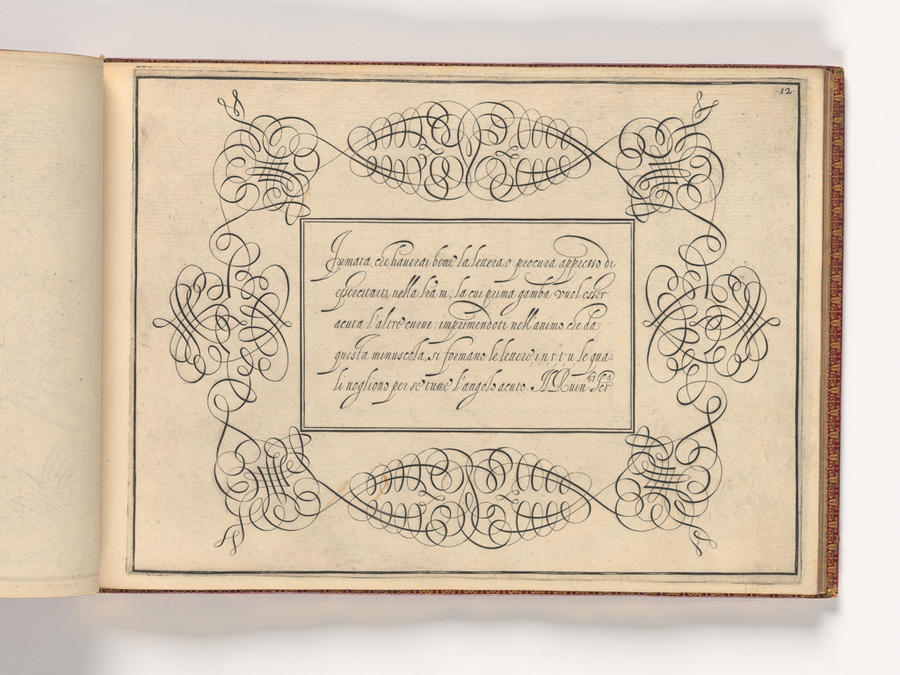 ·12·
Formata, che haverai bene la lettera o procura appresso di
essercitarti nella lra m; la cui prima gamba vuol esser
acuta l'altre curve: imprimendoti nell'animo, che da
questa minuscola, si formano le lettere i n r t u le qua-
li vogliono per se tutte l'angolo acuto. M. Ruin